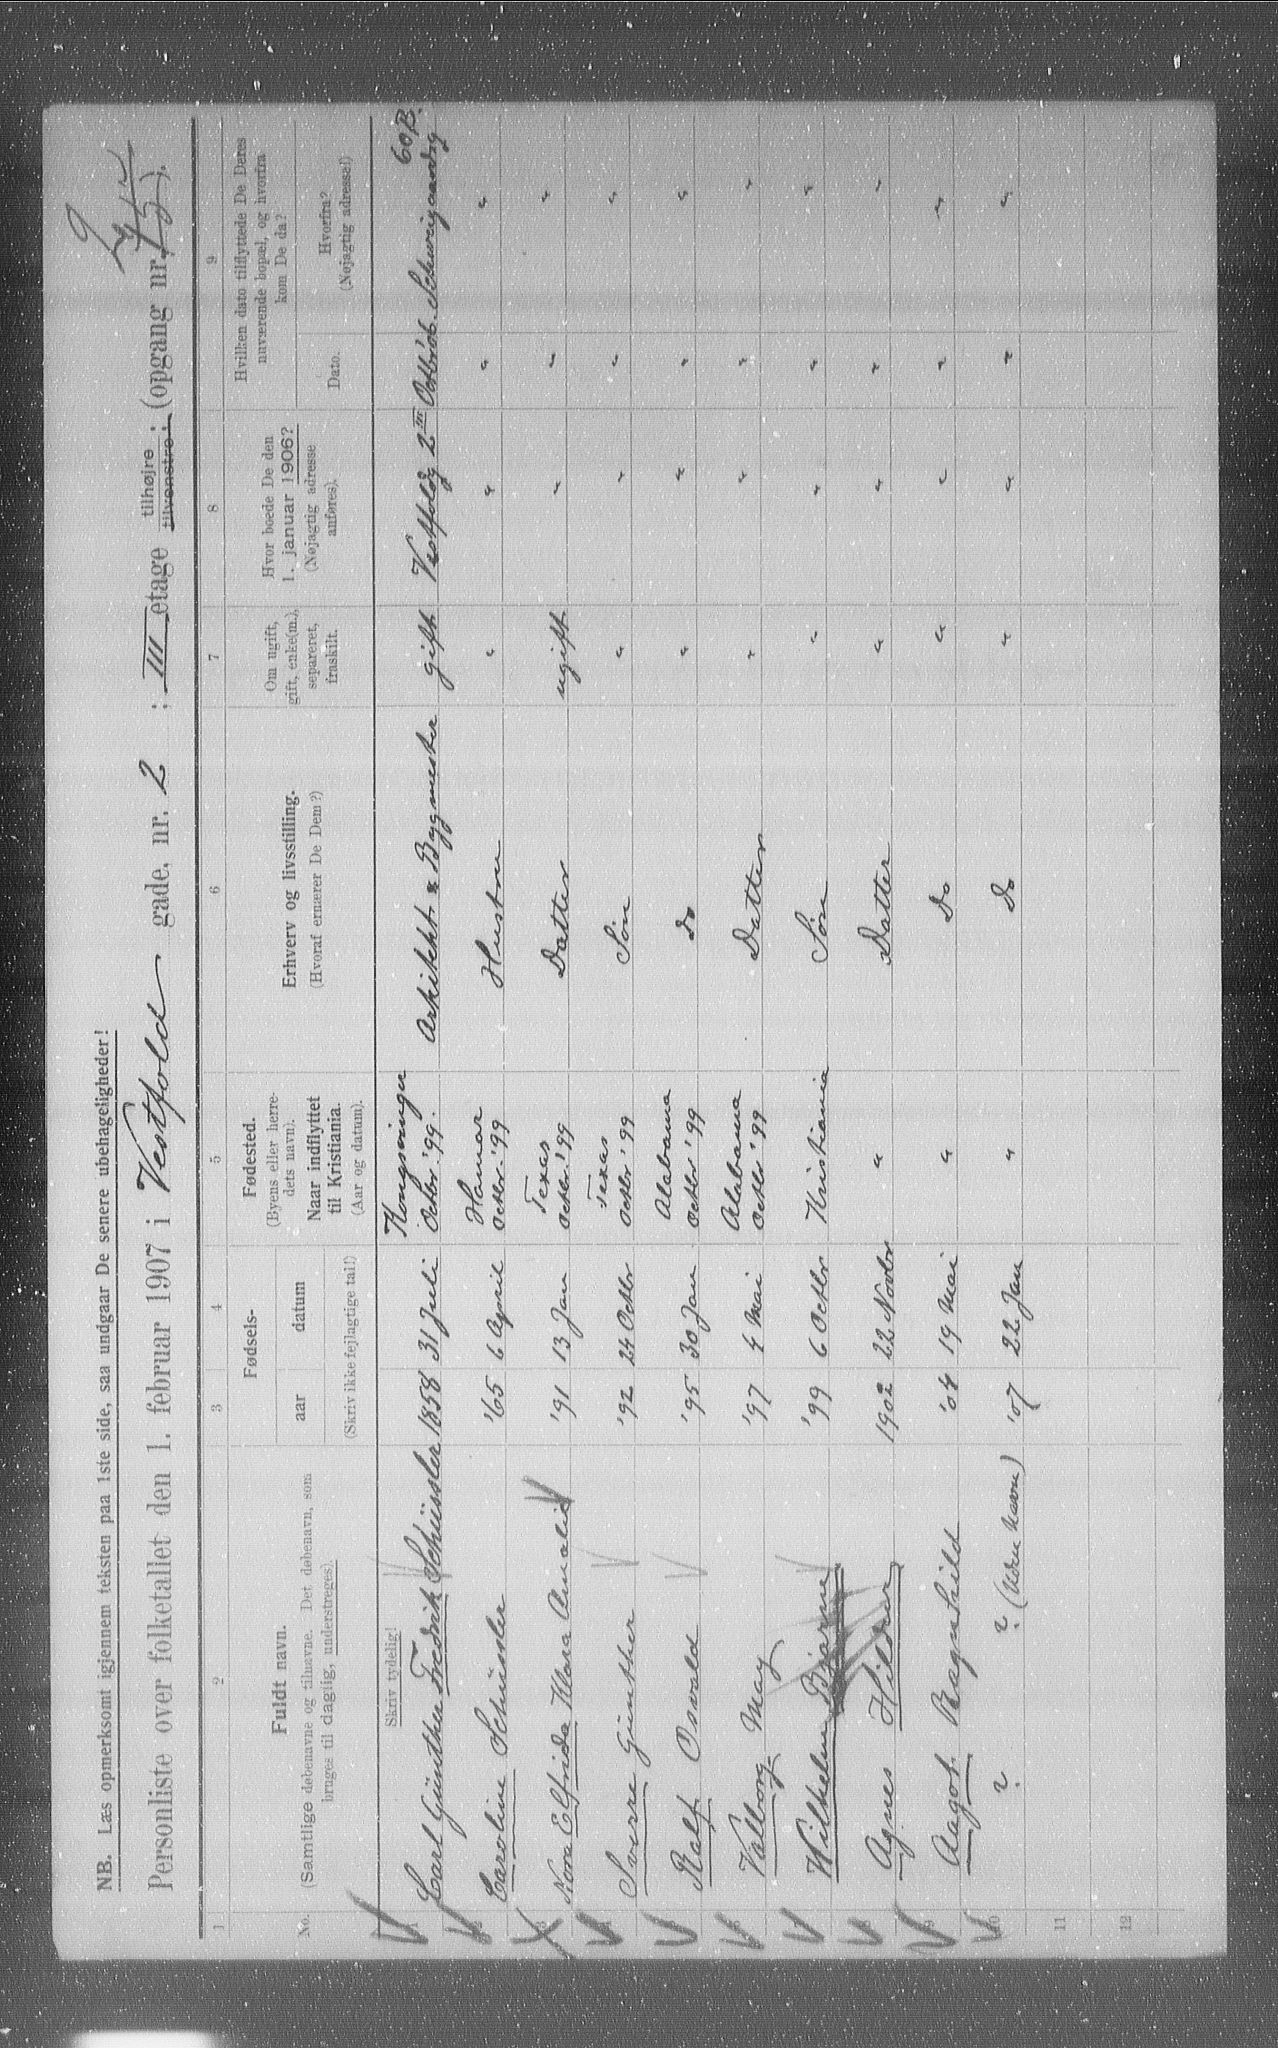 NB. Læs opmerksomt igjennem teksten paa 1ste side, saa undgaar De senere ubehageligheder!
Personliste over folketallet den 1. februar 1907 i Vestfold gade, nr. 2 ; III etage tilhøjre ; (opgang nr. ).
tilvenstre ;
1 2 3 4 5 6 7 8 9
No.
Fuldt navn.
(Samtlige døbenavne og tilnavne. Det døbenavn, som
bruges til daglig, understreges).
Fødsels-
aar datum
(Skriv ikke fejlagtige tal!)
Fødested.
(Byens eller herre-
dets navn).
Naar indflyttet
til Kristiania.
(Aar og datum).
Erhverv og livsstilling.
(Hvoraf ernærer De Dem?)
Om ugift,
gift, enke(m.),
separeret,
fraskilt.
Hvor boede De den
1. januar 1906?
(Nøjagtig adresse
anføres).
Hvilken dato tilflyttede De Deres
nuværende bopæl, og hvorfra
kom De da?
Dato.
Hvorfra?
(Nøjagtig adresse!)
Skriv tydelig!
Kongsvinger 60 B.
1 Carl Günther Fredrik Schüssler 1858 31 Juli Octbr. '99. Arkitekt & Bygmester gift Vestfoldg 2 III Octbr 06. Schweigaardsg
Hamar
2 Caroline Schüssler '65 6 April Octbr. '99 Hustru " " " "
Texas
3 Nora Elfrida Klara Amalie '91 13 Jan Octbr. '99 Datter ugift " " "
Texas
4 Sverre Günther '92 24 Octbr Octbr '99 Søn " " " "
Alabama
5 Ralf Osvald '95 30 Jan Octbr '99 do " " " "
Alabama
6 Valborg May '97 4 Mai Octbr '99 Datter " " " "
7 Wilhelm Bjarne '99 6 Octbr Kristiania Søn " " " "
8 Agnes Hildur 1902 22 Novbr " Datter " " " "
9 Aagot Ragnhild '04 19 Mai " Do " " " "
10 ? ? (Uden Navn) '07 22 Jan " Do " " " "
11
12